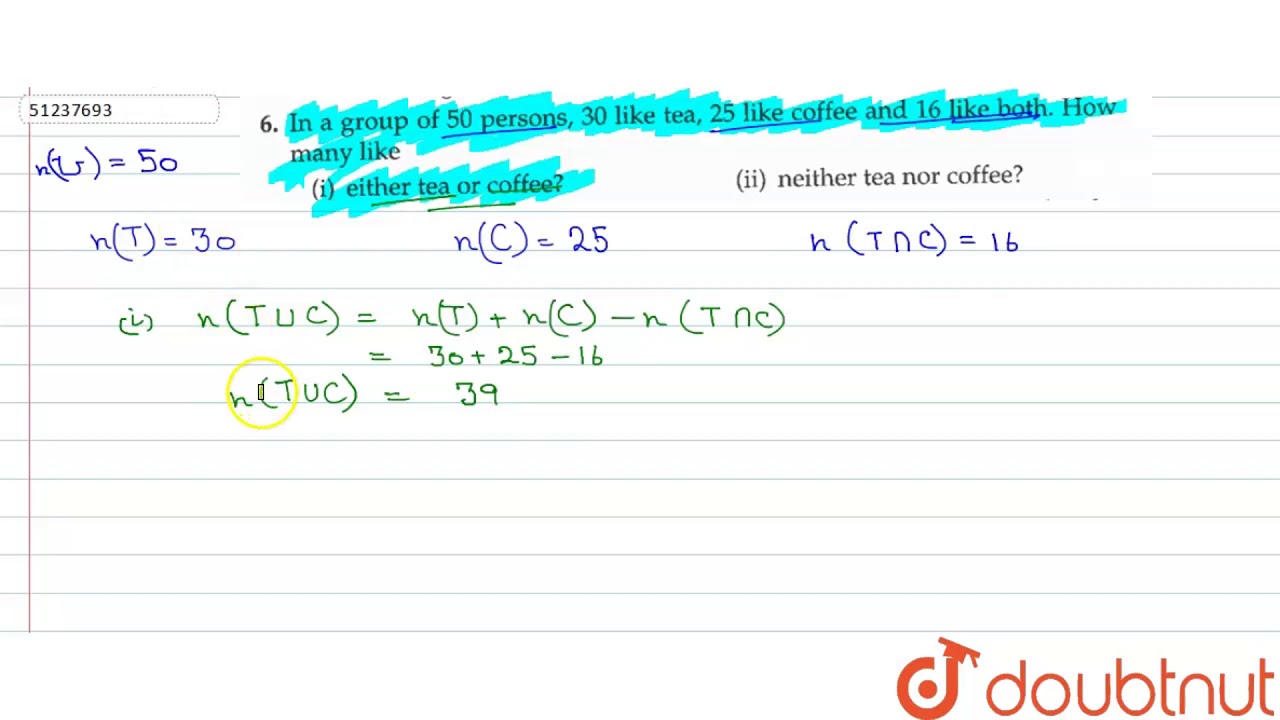 51237693
6. In a group of 50 persons, 30 like tea, 25 like coffee and 16 like both. How
many like
(i) either tea or coffee? (ii) neither tea nor coffee?
n(U) = 50
n(T) = 30 n(C) = 25 n (T ∩ C) = 16
(i) n (T ∪ C) = n(T) + n(C) - n (T ∩ C)
= 30 + 25 - 16
n(T ∪ C) = 39
doubtnut